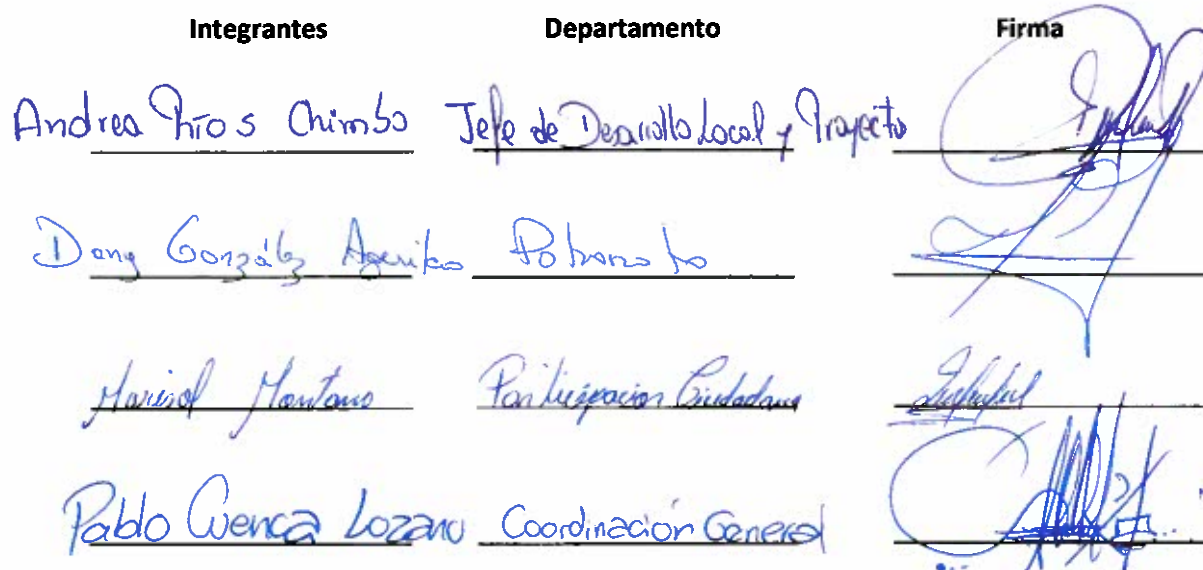 Integrantes Departamento Firma
Andrea Ríos Chimbo Jefe de Desarrollo Local y Proyecto
Dany González Patronato
Marisol Montano Participacion Ciudadana
Pablo Cuenca Lozano Coordinación General